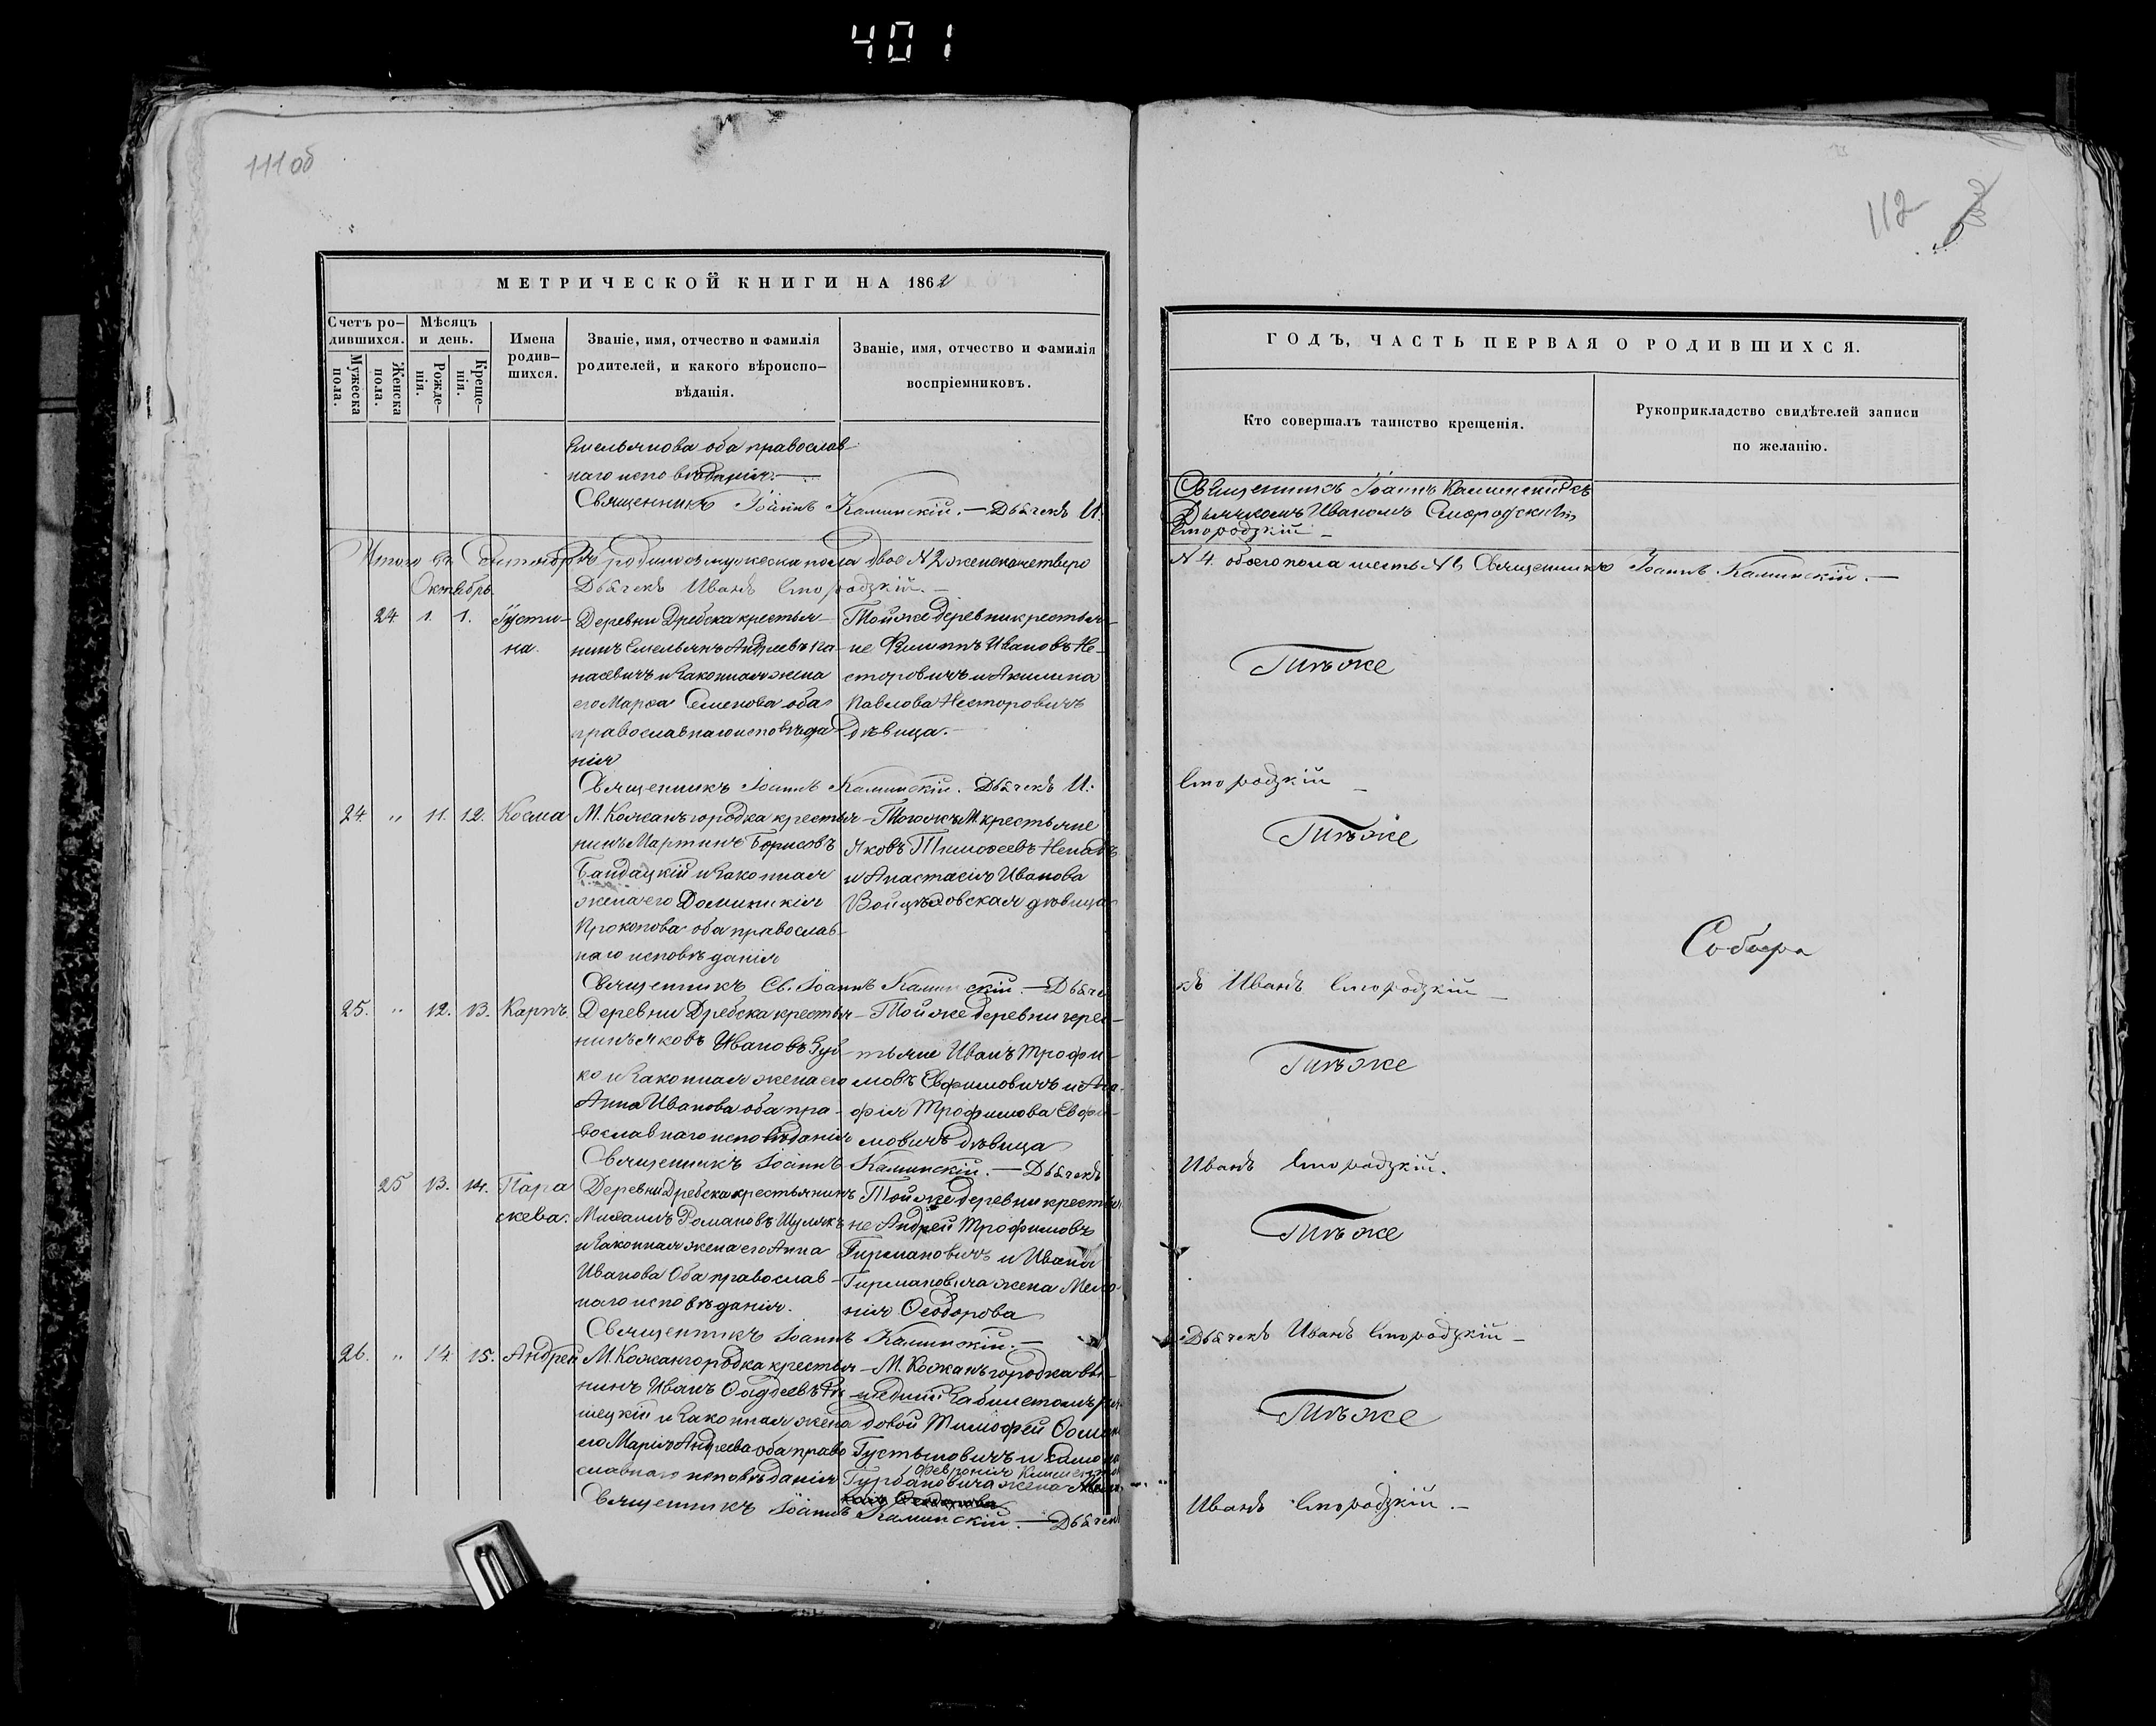 401
111 об
112
МЕТРИЧЕСКОЙ КНИГИ НА 1862
Счетъ ро-
дившихся.
Мужеска
пола.
Женска
пола.
Мѣсяцъ
и день.
Рожде-
нія.
Креще-
нія.
Имена
родив-
шихся.
Званіе, имя, отчество и фамилія
родителей, и какого вѣроиспо-
вѣданія.
Званіе, имя, отчество и фамилія
воспріемниковъ.
Емельянова оба православ-
наго исповѣданія.
Священникъ Іоаннъ Каминскій. — Дьячекъ И.
Итого въ Сентябрѣ родилось мужеска пола двое N 2 женска четверо
Октябрь.
Дьячекъ Иванъ Смородзкій. -
24 1. 1. Іусти-
на.
Деревни Дребска крестья-
нинъ Емельянъ Андреевъ Па-
насевичъ и законная жена
его Марѳа Семенова оба
православнаго исповѣда-
нія
Тойже деревни крестья-
не Филиппъ Ивановъ Не-
сторовичъ и Акилина
Павлова Несторовичъ
дѣвица.
Священникъ Іоаннъ Каминскій. Дьячекъ И.
24. " 11. 12. Косма
М. Кожангородка крестья-
нинъ Мартинъ Борисовъ
Бандацкій и законная
жена его Доминикія
Прокопова оба православ-
наго исповѣданія
Тогожъ М. крестьяне
Яковъ Тимоѳеевъ
и Анастасія Иванова
дѣвица
Священникъ Св. Іоаннъ Каминскій. — Дьяче
25. " 12. 13. Карпъ.
Деревни Дребска крестья-
нинъ Яковъ Ивановъ Зуб-
ко и законная жена его
Анна Иванова оба пра-
вославнаго исповѣданія
Тойже деревни крес-
тьяне Иванъ Трофи-
мовъ Евфимовичъ и Ага-
фія Трофимова Евфи-
мовичъ дѣвица
Священникъ Іоаннъ Каминскій. — Дьячекъ
25 13. 14. Пара
скева.
Деревни Дребска крестьянинъ
Михаилъ Романовъ Шулякъ
и законная жена его Анна
Иванова Оба православ-
наго исповѣданія.
Тойже деревни крестья
не Андрей Трофимовъ
Гирмановичъ и Ивана
Гирмановича жена Мела-
нія Ѳеодорова
Священникъ Іоаннъ Каминскій. —
26. " 14. 15. Андрей
М. Кожангородка крестья-
нинъ Иванъ Ѳаддеевъ
и законная жена
его Марія Андреева оба право
славнаго исповѣданія
М. Кожангородка вы-
шедшій за билетомъ ря-
довой Тимофей
Густыновичъ и
Февронія
Гурбановича жена
Священникъ Іоаннъ Каминскій. — Дьячекъ
ГОДЪ, ЧАСТЬ ПЕРВАЯ О РОДИВШИХСЯ.
Кто совершалъ таинство крещенія.
Рукоприкладство свидѣтелей записи
по желанію.
Священникъ Іоаннъ Каминскій съ
Дьячкомъ Иваномъ Смородскимъ
Смородзкій -
N 4. обоего пола шесть N 6 Священникъ Іоаннъ Каминскій. —
Тѣже
Смородзкій -
Тѣже
Собора
къ Иванъ Смородзкій -
Тѣже
Иванъ Смородзкій.
Тѣже
Дьячекъ Иванъ Смородзкій -
Тѣже
Иванъ Смородзкій. -